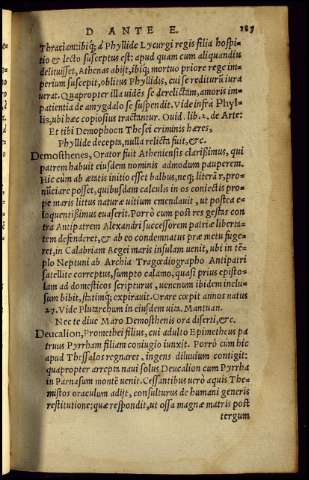 D ANTE E. 287
Thraciam ibiq; à Phyllide Lycurgi regis filia hospi-
tio & lecto susceptus est: apud quam cum aliquandiu
delituisset, Athenas abijt, ibiq; mortuo priore rege im-
perium suscepit, oblitus Phyllidis, cui se rediturū iura
uerat. Quapropter illa uidēs se derelictam, amoris im-
patientia de amygdalo se suspendit. Vide infrà Phyl-
lis, ubi hæc copiosius tractantur. Ouid. lib. 2. de Arte:
Et tibi Demophoon Thesei criminis hæres,
Phyllide decepta, nulla relicta fuit, &c.
Demosthenes, Orator fuit Atheniensis clarißimus, qui
patrem habuit eiusdem nominis admodum pauperem.
Hic cum ab ætatis initio esset balbus, neq; literā r, pro-
nūciare posset, quibusdam calculis in os coniectis pro-
pe maris littus naturæ uitium emendauit, ut postea e-
loquentißimus euaserit. Porrò cum post res gestas con
tra Antipatrem Alexandri successorem patriæ liberta-
tem defenderet, & ab eo condemnatus præ metu fuge-
ret, in Calabriam Aegei maris insulam uenit, ubi in tē-
plo Neptuni ab Archia Tragœdiographo Antipatri
satellite correptus, sumpto calamo, quasi prius episto-
lam ad domesticos scripturus, uenenum ibidem inclu-
sum bibit, statimq; expirauit. Orare cœpit annos natus
27. Vide Plutarchum in eiusdem uita. Mantuan.
Nec te diue Maro Demosthenis ora diserti, &c.
Deucalion, Promethei filius, cui adulto Epimetheus pa
truus Pyrrham filiam coniugio iunxit. Porrò cum hic
apud Thessalos regnaret, ingens diluuium contigit:
quapropter arrepta naui solus Deucalion cum Pyrrha
in Parnasum montē uenit. Cessantibus uerò aquis The-
mistos oraculum adijt, consulturus de humani generis
restitutione: quæ respondit, ut ossa magnæ matris post
tergum